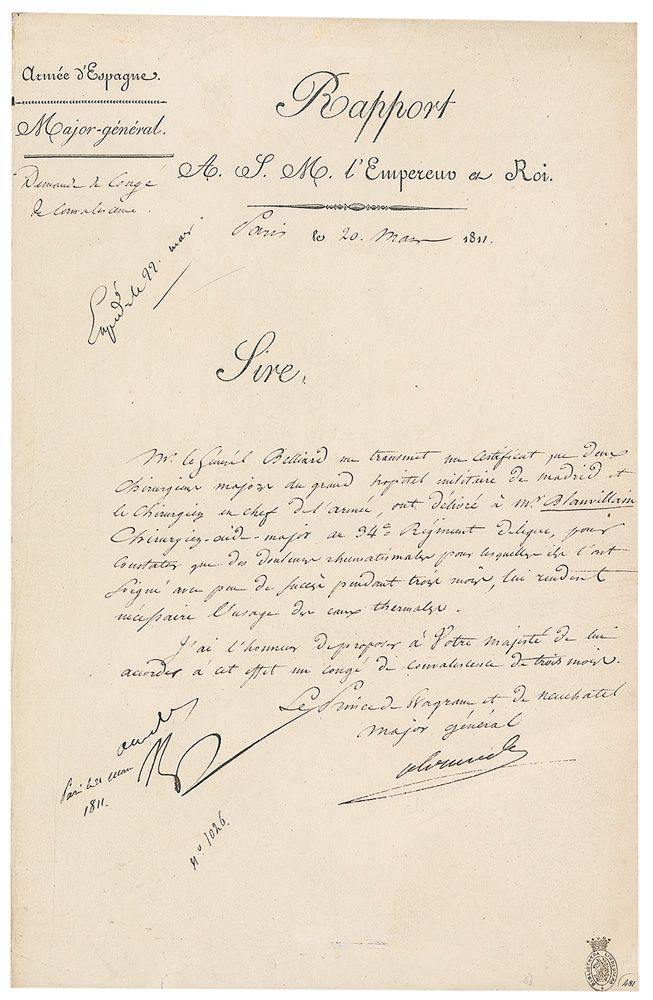 Armée d'Espagne.
Major-général.
Demande de Congé
de Convalescence.
Rapport
A. S. M. l'Empereur et Roi.
Paris le 20. Mars 1811.
Expédié le 22. mars
Sire,
Mr. le Général Belliard me transmet un certificat que deux
Chirurgiens majors du grand hopital militaire de madrid et
le Chirurgien en chef de l'armée, ont délivré à Mr. Blanvillain
Chirurgien-aide-major au 34e. Régiment de ligne, pour
Constater que des douleurs rheumatismales pour lesquelles ils l'ont
soigné avec peu de succès pendant trois mois, lui rendent
nécessaire l'usage des eaux thermales.
J'ai l'honneur de proposer à Votre Majesté de lui
accorder à cet effet un congé de convalescence de trois mois.
Le Prince de Wagram et de neuchatel
major général
Alexandre
accordé
Np
Paris le 21 mars
1811.
No. 1026.
BIBLIOTHECA LINDESIANA
481